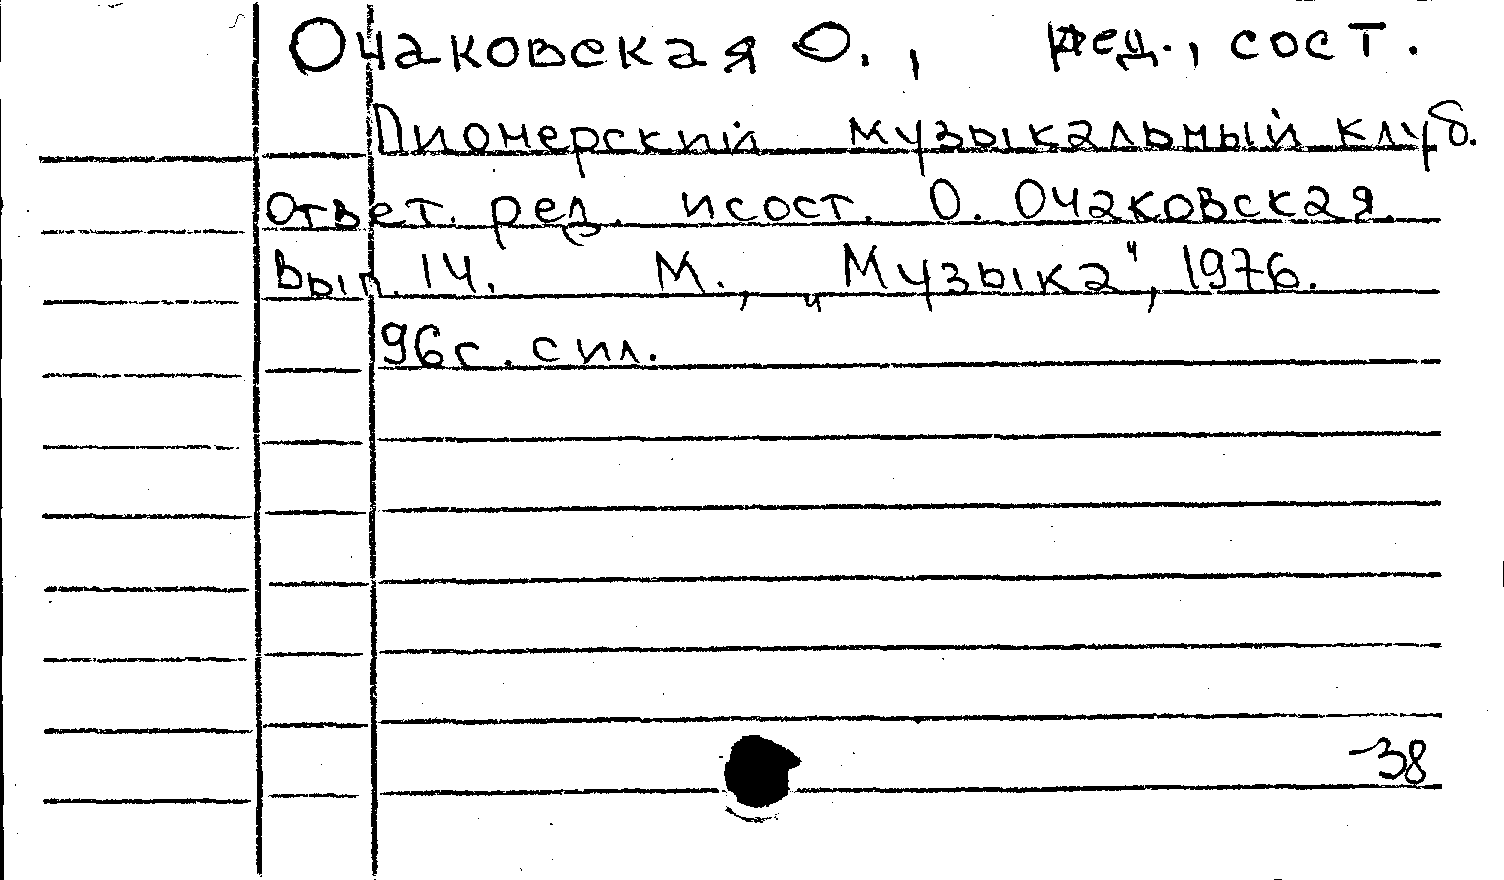 Очаковская О., ред., сост.
Пионерский музыкальный клуб.
ответ. ред. исост. О. Очаковская.
Вып. 14. М., „Музыка", 1976.
96с. сил.
38